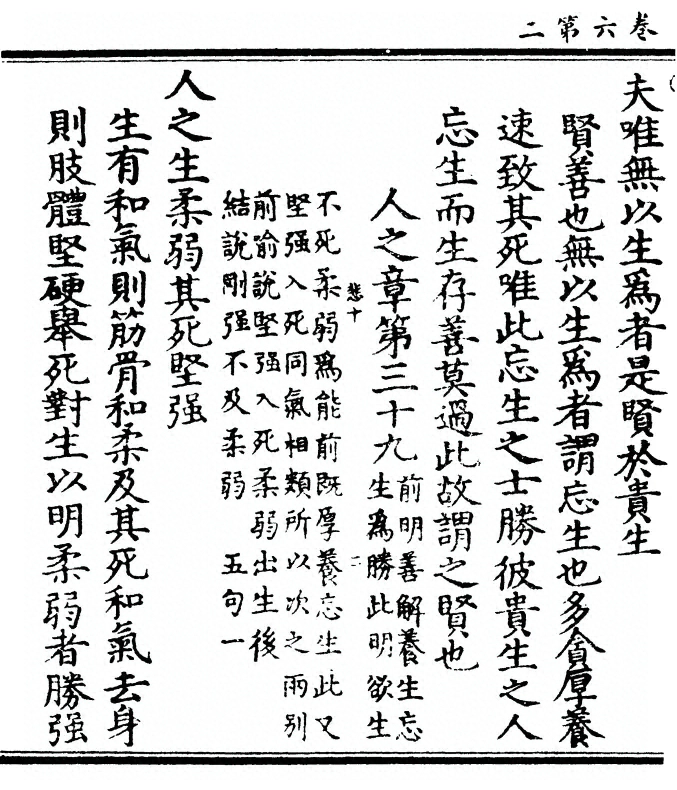 卷六第二
夫唯無以生爲者是賢於貴生
賢善也無以生爲者謂忘生也多貪厚養
速致其死唯此忘生之士勝彼貴生之人
忘生而生存善莫過此故謂之賢也
人之章第三十九
前明善解養生忘
生爲勝此明欲生
二
不死柔弱爲能前既厚養忘生此又
堅强入死同氣相類所以次之兩别
前喻說堅强入死柔弱出生後
結說剛强不及柔弱 五句一
人之生柔弱其死堅强
生有和氣則筋骨和柔及其死和氣去身
則肢體堅硬舉死對生以明柔弱者勝强